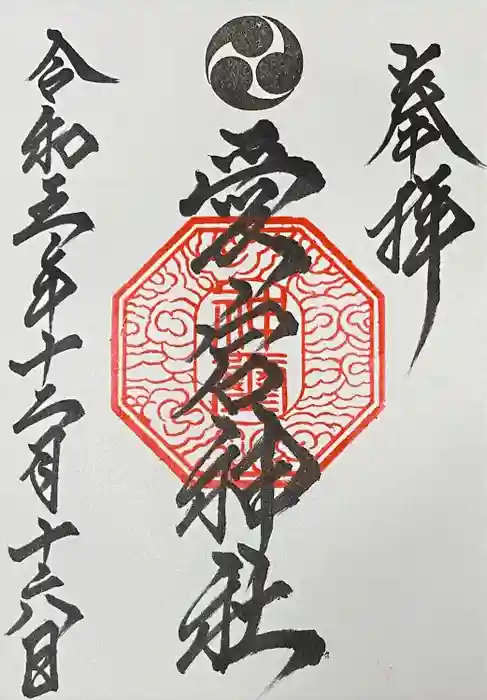 奉拝
愛宕神社
神璽
令和五年十二月十六日